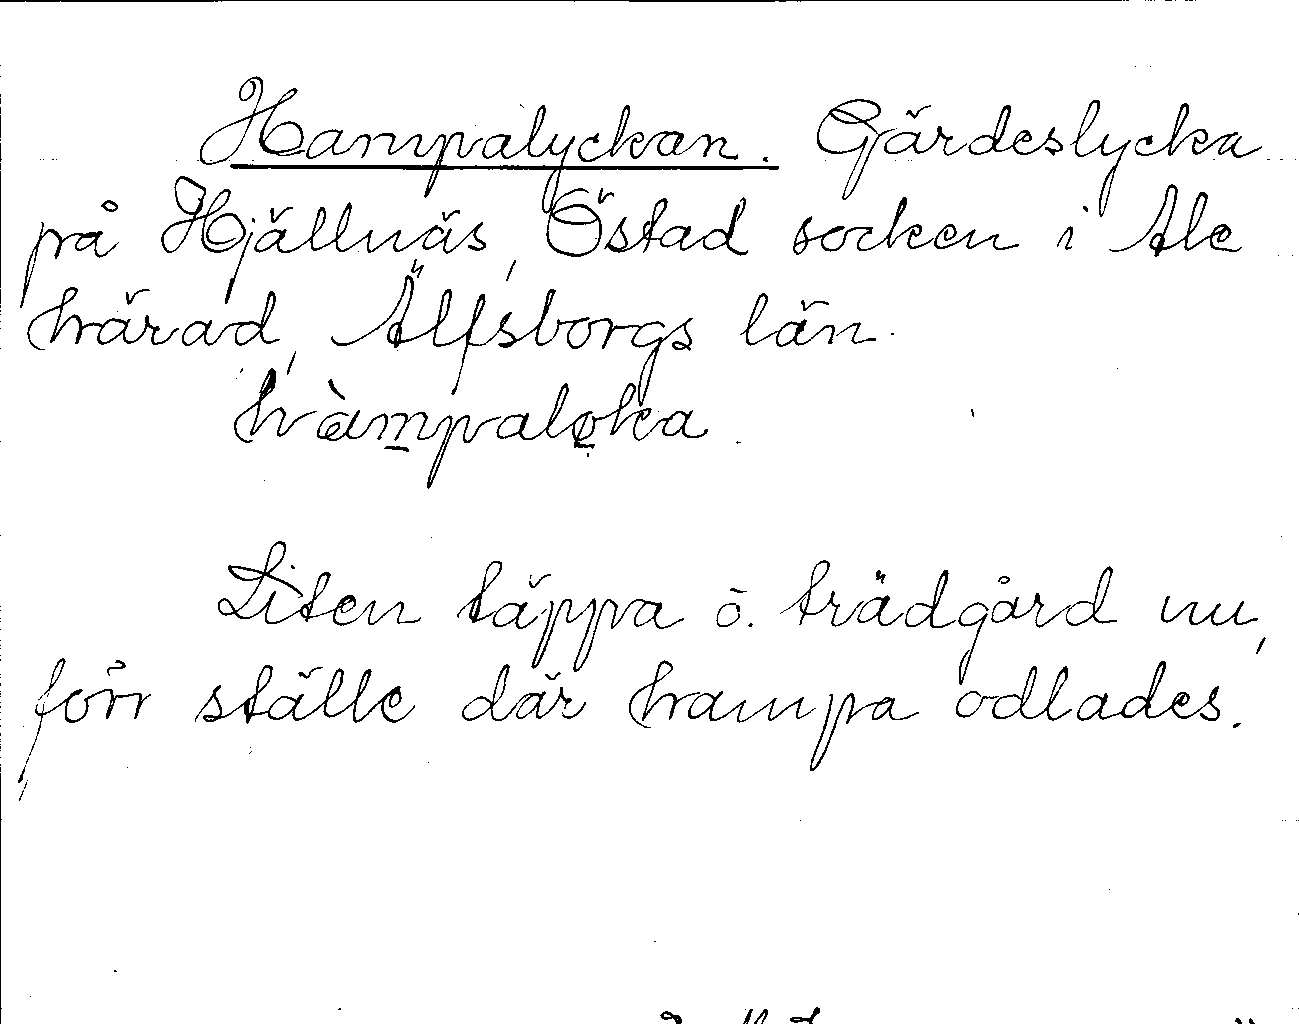 Hampalyckan. Gärdeslycka
på Hjällnäs, Östad socken i Ale
härad, Älfsborgs län.
hàmpaløka
Liten täppa o. trädgård nu,
förr ställe där hampa odlades.